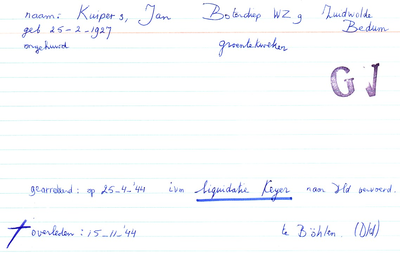 naam: Kuipers, Jan Boterdiep WZ 9 Zuidwolde
geb 25-2-1927 Bedum
ongehuwd groentekweker
G V
gearresteerd: op 25-4-'44 ivm liquidatie Keijer naar Dld vervoerd.
overleden: 15-11-'44 te Böhlen. (Dld)